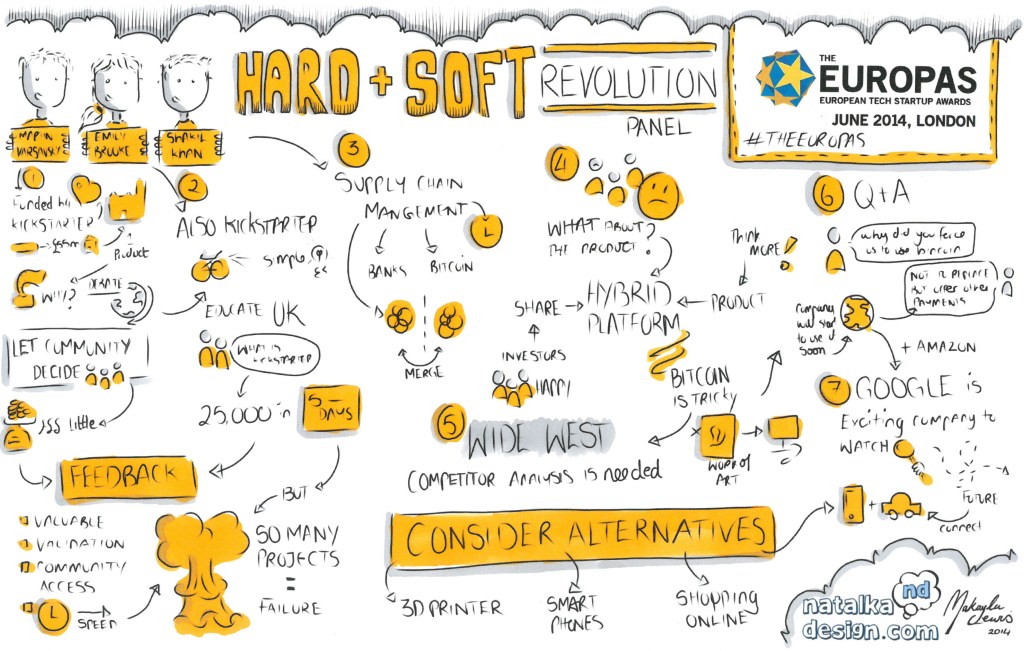 HARD + SOFT
REVOLUTION
PANEL
THE
EUROPAS
EUROPEAN TECH STARTUP AWARDS
JUNE 2014, LONDON
#THEEUROPAS
MARTIN
VARSAVSKY
EMILY
BROOKE
SHAKIL
KHAN
1
Funded by
KICKSTARTER
Product
WHY?
DEBATE
LET COMMUNITY
DECIDE
$$$ Little
FEEDBACK
VALUABLE
VALIDATION
COMMUNITY
ACCESS
SPEED
2
ALSO KICKSTARTER
SIMPLE
EDUCATE UK
WHAT IS
KICKSTARTER
25,000 in
5
DAYS
BUT
SO MANY
PROJECTS
=
FAILURE
3
SUPPLY CHAIN
MANGEMENT
BANKS
BITCOIN
MERGE
4
WHAT ABOUT
THE PRODUCT?
THINK
MORE!
SHARE
HYBRID
PLATFORM
PRODUCT
INVESTORS
HAPPY
BITCOIN
IS TRICKY
WORK OF
ART
5
WIDE WEST
COMPETITOR ANALYSIS IS needed
CONSIDER ALTERNATIVES
3D PRINTER
SMART
PHONES
SHOPPING
ONLINE
6
Q+A
Why did you force
us to use bitcoin
NOT TO REPLACE
BUT offer other
PAYMENTS
Company
will start
to use it
soon
+ AMAZON
7
GOOGLE is
Exciting company to
WATCH
FUTURE
+
connect
nd
natalka
design.com
Makayla
Lewis
2014